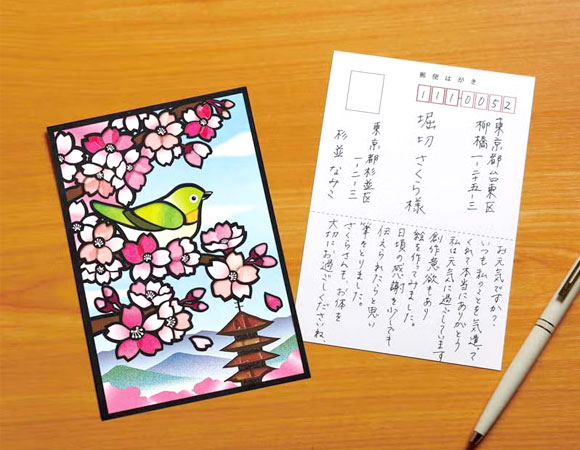 郵便はがき
111-0052
東京都台東区
柳橋一-二十五-三
堀切さくら様
東京都杉並区
一-二-三
杉並なみこ
お元気ですか?
いつも私のことを気遣って
くれて本当にありがとう
私は元気に過ごしています
創作意欲もあり
絵を作ってみました。
日頃の感謝を少しでも
伝えられたらと思い
筆をとりました。
さくらさんもお体を
大切にお過ごしくださいね。